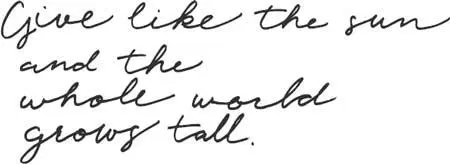 Give like the sun
and the
whole world
grows tall.